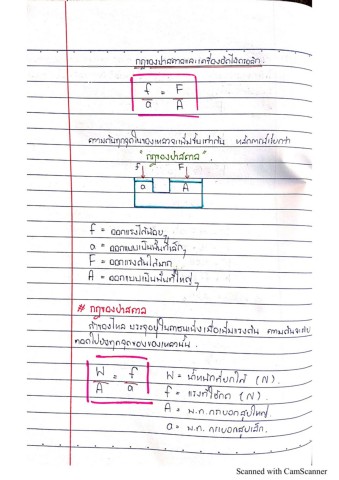 กฎของปาสคาลและเครื่องอัดไฮดรอลิก.
f/a = F/A
ความดันทุกจุดในของเหลวจะเพิ่มขึ้นเท่ากัน หลักการนี้เรียกว่า
"กฎของปาสคาล".
f F
a A
f = ออกแรงได้น้อย,
a = ออกแบบเป็นพื้นที่เล็ก,
F = ออกแรงดันได้มาก,
A = ออกแบบเป็นพื้นที่ใหญ่,
# กฎของปาสคาล
ถ้าของไหล บรรจุอยู่ในภาชนะเมื่อเพิ่มแรงดัน ความดันจะส่ง
ต่อไปยังทุกจุดของของเหลวนั้น.
W/A = f/a
W = น้ำหนักที่ยกได้ (N).
f = แรงที่ใช้กด (N).
A = พ.ท. กระบอกสูบใหญ่.
a = พ.ท. กระบอกสูบเล็ก.
Scanned with CamScanner